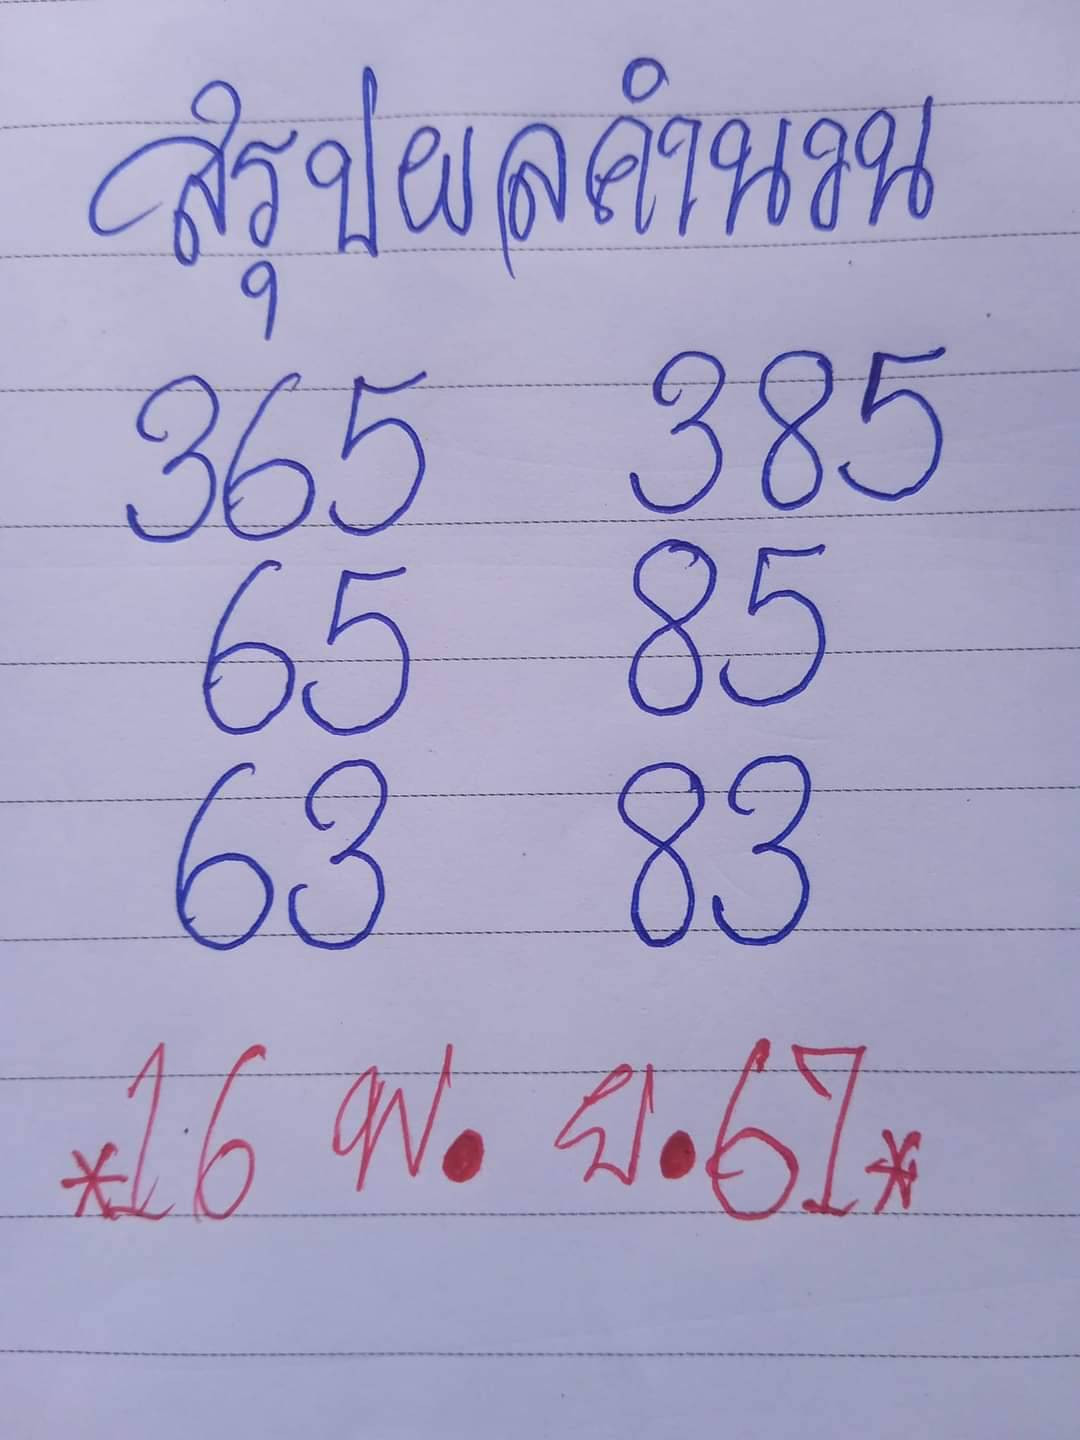 สรุปผลคำนวน
365 385
65 85
63 83
*16 พ. ย. 67*